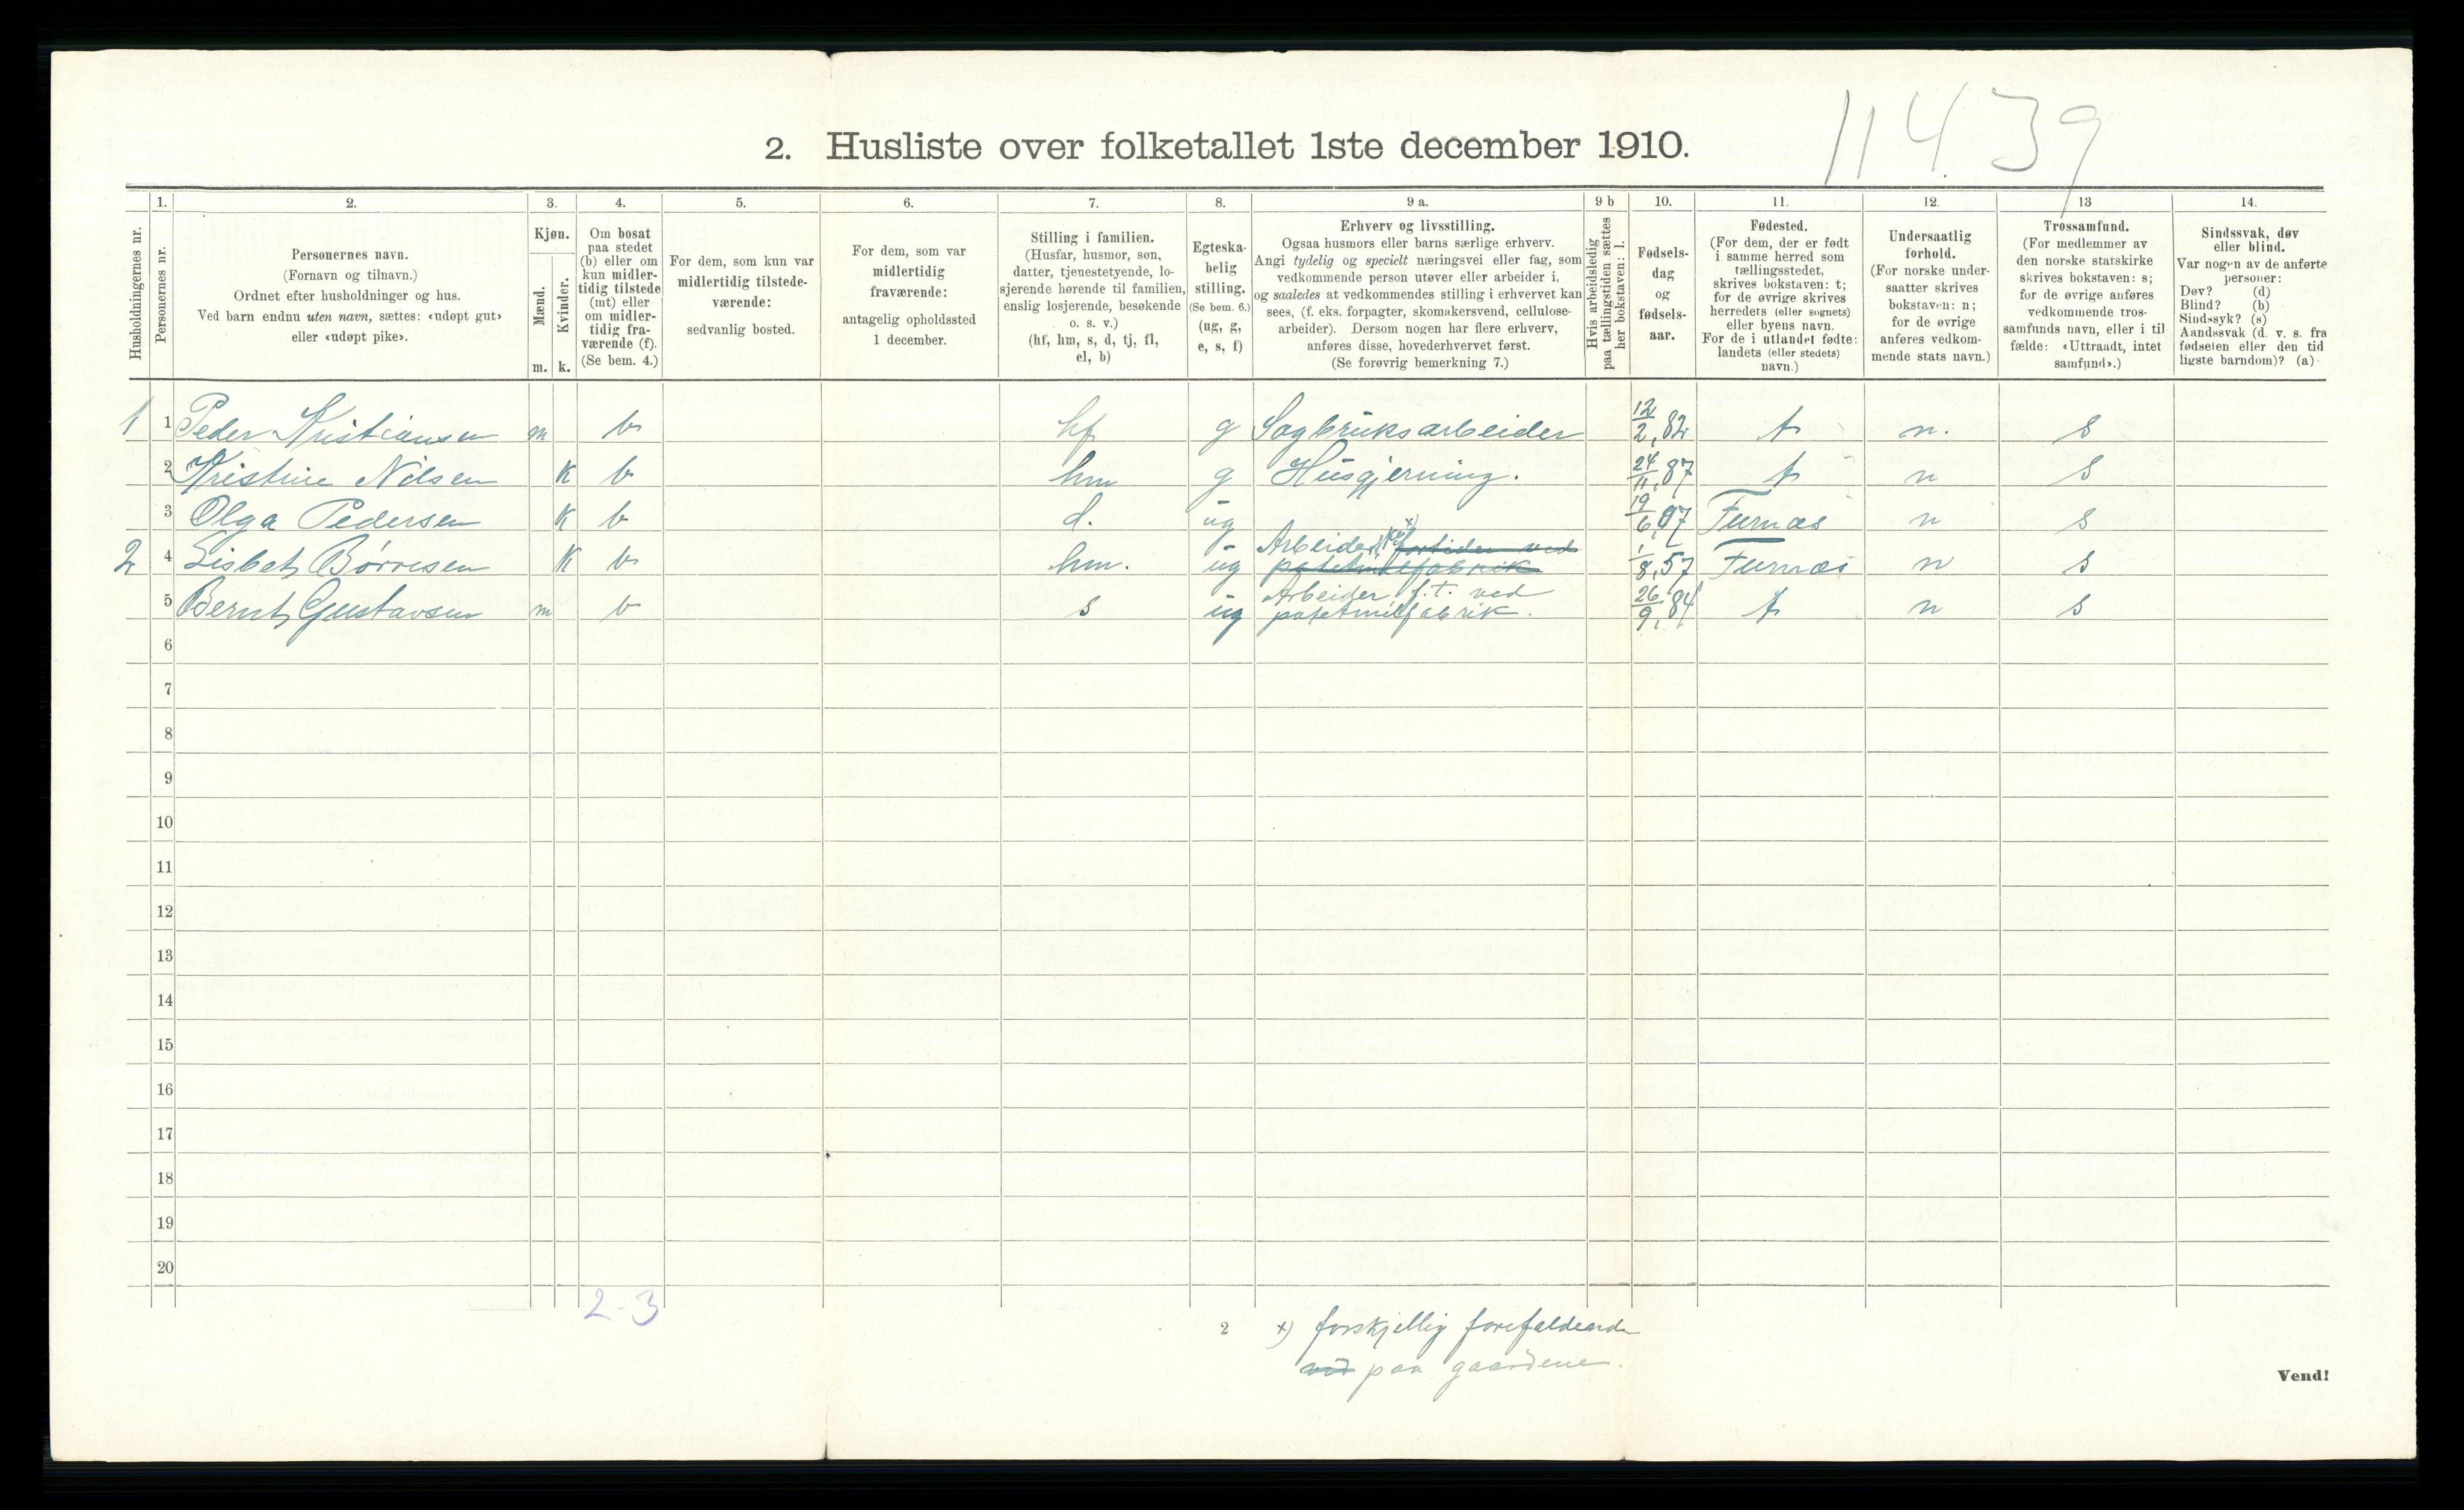 11439
2. Husliste over folketallet 1ste december 1910.
Husholdningernes nr.
1.
Personernes nr.
2.
Personernes navn.
(Fornavn og tilnavn.)
Ordnet efter husholdninger og hus.
Ved barn endnu uten navn, sættes: «udøpt gut»
eller «udøpt pike».
3.
Kjøn.
Mænd.
Kvinder.
m.
k.
4.
Om bosat
paa stedet
(b) eller om
kun midler-
tidig tilstede
(mt) eller
om midler-
tidig fra-
værende (f).
(Se bem. 4.)
5.
For dem, som kun var
midlertidig tilstede-
værende:
sedvanlig bosted.
6.
For dem, som var
midlertidig
fraværende:
antagelig opholdssted
1 december.
7.
Stilling i familien.
(Husfar, husmor, søn,
datter, tjenestetyende, lo-
sjerende hørende til familien,
enslig losjerende, besøkende
o. s. v.)
(hf, hm, s, d, tj, fl,
el, b)
8.
Egteska-
belig
stilling.
(Se bem. 6.)
(ug, g,
e, s, f)
9 a.
Erhverv og livsstilling.
Ogsaa husmors eller barns særlige erhverv.
Angi tydelig og specielt næringsvei eller fag, som
vedkommende person utøver eller arbeider i,
og saaledes at vedkommendes stilling i erhvervet kan
sees, (f. eks. forpagter, skomakersvend, cellulose-
arbeider). Dersom nogen har flere erhverv,
anføres disse, hovederhvervet først.
(Se forøvrig bemerkning 7.)
9 b
Hvis arbeidsledig
paa tællingstiden sættes
her bokstaven: l.
10.
Fødsels-
dag
og
fødsels-
aar.
11.
Fødested.
(For dem, der er født
i samme herred som
tællingsstedet,
skrives bokstaven: t;
for de øvrige skrives
herredets (eller sognets)
eller byens navn.
For de i utlandet fødte:
landets (eller stedets)
navn.)
12.
Undersaatlig
forhold.
(For norske under-
saatter skrives
bokstaven: n;
for de øvrige
anføres vedkom-
mende stats navn.)
13
Trossamfund.
(For medlemmer av
den norske statskirke
skrives bokstaven: s;
for de øvrige anføres
vedkommende tros-
samfunds navn, eller i til
fælde: «Uttraadt, intet
samfund».)
14.
Sindssvak, døv
eller blind.
Var nogen av de anførte
personer:
Døv? (d)
Blind? (b)
Sindssyk? (s)
Aandssvak (d. v. s. fra
fødselen eller den tid
ligste barndom)? (a)
1 1 Peder Kristiansen m b hf g Sagbruksarbeider 12/2,82 t n. s
2 Kristine Nilsen K b hm g Husgjerning. 24/11,87 t n s
3 Olga Pedersen K b d. ug 19/6,07 Furnæs n s
2 4 Lisbet Børresen K b hm. ug Arbeider x) fortiden ved
potetmelfabrik 1/8,57 Furnæs n s
5 Bernt Gustavsen m b s ug Arbeider f.t. ved
potetmelfabrik. 26/9,84 t n s
6
7
8
9
10
11
12
13
14
15
16
17
18
19
20
2-3
2
x) forskjellig forefaldende
ved paa gaardene.
Vend!